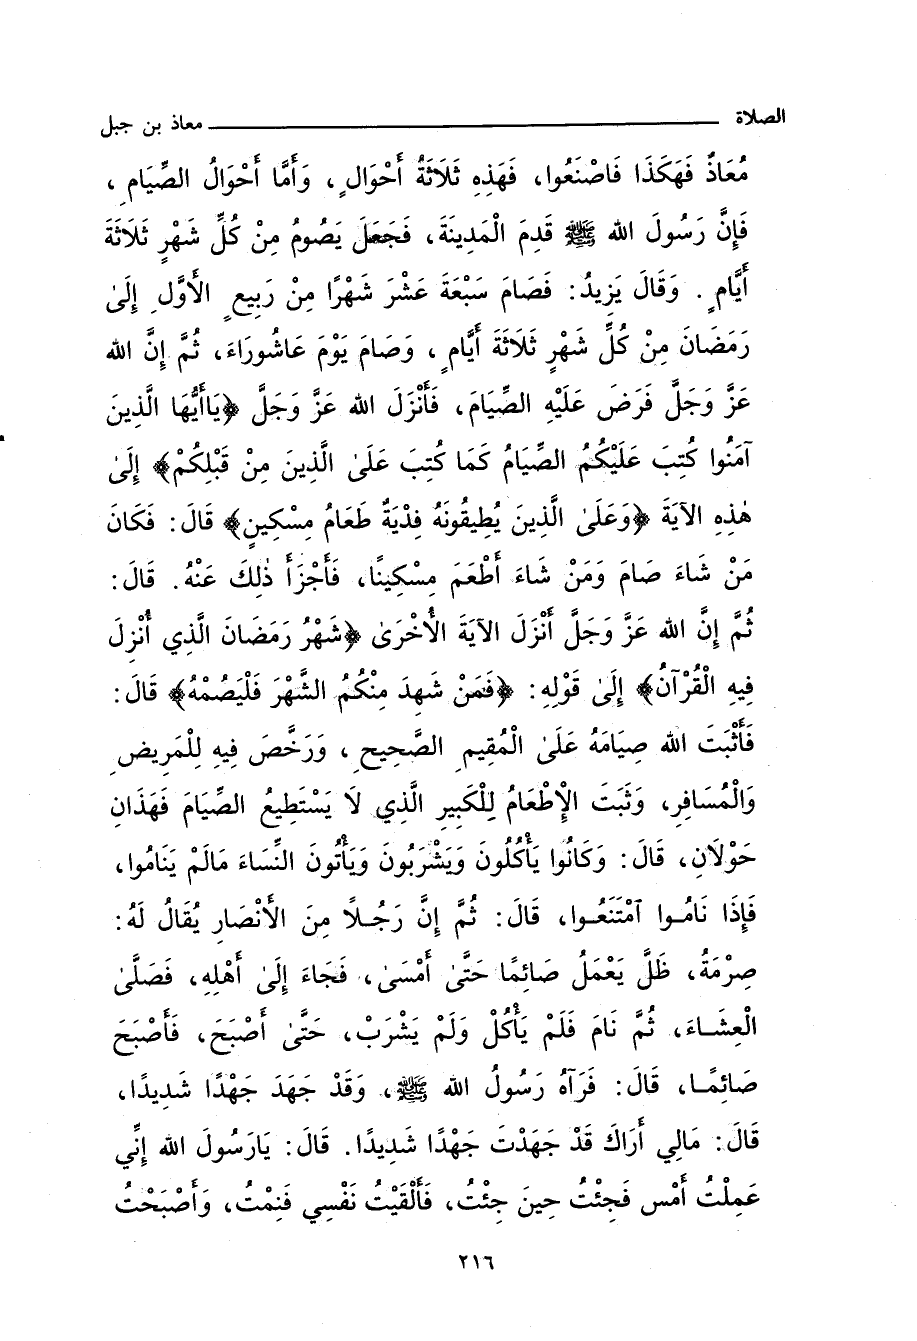 الصلاة معاذ بن جبل
مُعَاذٌ فَهَكَذَا فَاصْنَعُوا، فَهَذِهِ ثَلَاثَةُ أَحْوَالٍ، وَأَمَّا أَحْوَالُ الصِّيَامِ،
فَإِنَّ رَسُولَ الله ﷺ قَدِمَ الْمَدِينَةَ، فَجَعَلَ يَصُومُ مِنْ كُلِّ شَهْرٍ ثَلَاثَةَ
أَيَّامٍ. وَقَالَ يَزِيدُ: فَصَامَ سَبْعَةَ عَشْرَ شَهْرًا مِنْ رَبِيعٍ الْأَوَّلِ إِلَىٰ
رَمَضَانَ مِنْ كُلِّ شَهْرٍ ثَلَاثَةَ أَيَّامٍ، وَصَامَ يَوْمَ عَاشُورَاءَ، ثُمَّ إِنَّ الله
عَزَّ وَجَلَّ فَرَضَ عَلَيْهِ الصِّيَامَ، فَأَنْزَلَ الله عَزَّ وَجَلَّ ﴿يَاأَيُّهَا الَّذِينَ
آمَنُوا كُتِبَ عَلَيْكُمُ الصِّيَامُ كَمَا كُتِبَ عَلَىٰ الَّذِينَ مِنْ قَبْلِكُمْ﴾ إِلَىٰ
هٰذِهِ الآيَةَ ﴿وَعَلَىٰ الَّذِينَ يُطِيقُونَهُ فِدْيَةٌ طَعَامُ مِسْكِينٍ﴾ قَالَ: فَكَانَ
مَنْ شَاءَ صَامَ وَمَنْ شَاءَ أَطْعَمَ مِسْكِينًا، فَأَجْزَأَ ذٰلِكَ عَنْهُ. قَالَ:
ثُمَّ إِنَّ الله عَزَّ وَجَلَّ أَنْزَلَ الآيَةَ الْأُخْرَىٰ ﴿شَهْرُ رَمَضَانَ الَّذِي أُنْزِلَ
فِيهِ الْقُرْآنُ﴾ إِلَىٰ قَوْلِهِ: ﴿فَمَنْ شَهِدَ مِنْكُمُ الشَّهْرَ فَلْيَصُمْهُ﴾ قَالَ:
فَأَثْبَتَ الله صِيَامَهُ عَلَىٰ الْمُقِيمِ الصَّحِيحِ، وَرَخَّصَ فِيهِ لِلْمَرِيضِ
وَالْمُسَافِرِ، وَثَبَتَ الْإِطْعَامُ لِلْكَبِيرِ الَّذِي لَا يَسْتَطِيعُ الصِّيَامَ فَهَذَانِ
حَوْلَانِ، قَالَ: وَكَانُوا يَأْكُلُونَ وَيَشْرَبُونَ وَيَأْتُونَ النِّسَاءَ مَالَمْ يَنَامُوا،
فَإِذَا نَامُوا آمْتَنَعُوا، قَالَ: ثُمَّ إِنَّ رَجُلًا مِنَ الْأَنْصَارِ يُقَالُ لَهُ:
صِرْمَةُ، ظَلَّ يَعْمَلُ صَائِمًا حَتَّىٰ أَمْسَىٰ، فَجَاءَ إِلَىٰ أَهْلِهِ، فَصَلَّىٰ
الْعِشَاءَ، ثُمَّ نَامَ فَلَمْ يَأْكُلْ وَلَمْ يَشْرَبْ، حَتَّىٰ أَصْبَحَ، فَأَصْبَحَ
صَائِمًا، قَالَ: فَرَآهُ رَسُولُ الله ﷺ، وَقَدْ جَهَدَ جَهْدًا شَدِيدًا،
قَالَ: مَالِي أَرَاكَ قَدْ جَهَدْتَ جَهْدًا شَدِيدًا. قَالَ: يَارَسُولَ الله إِنِّي
عَمِلْتُ أَمْسِ فَجِئْتُ حِينَ جِئْتُ، فَأَلْقَيْتُ نَفْسِي فَنِمْتُ، وَأَصْبَحْتُ
٢١٦